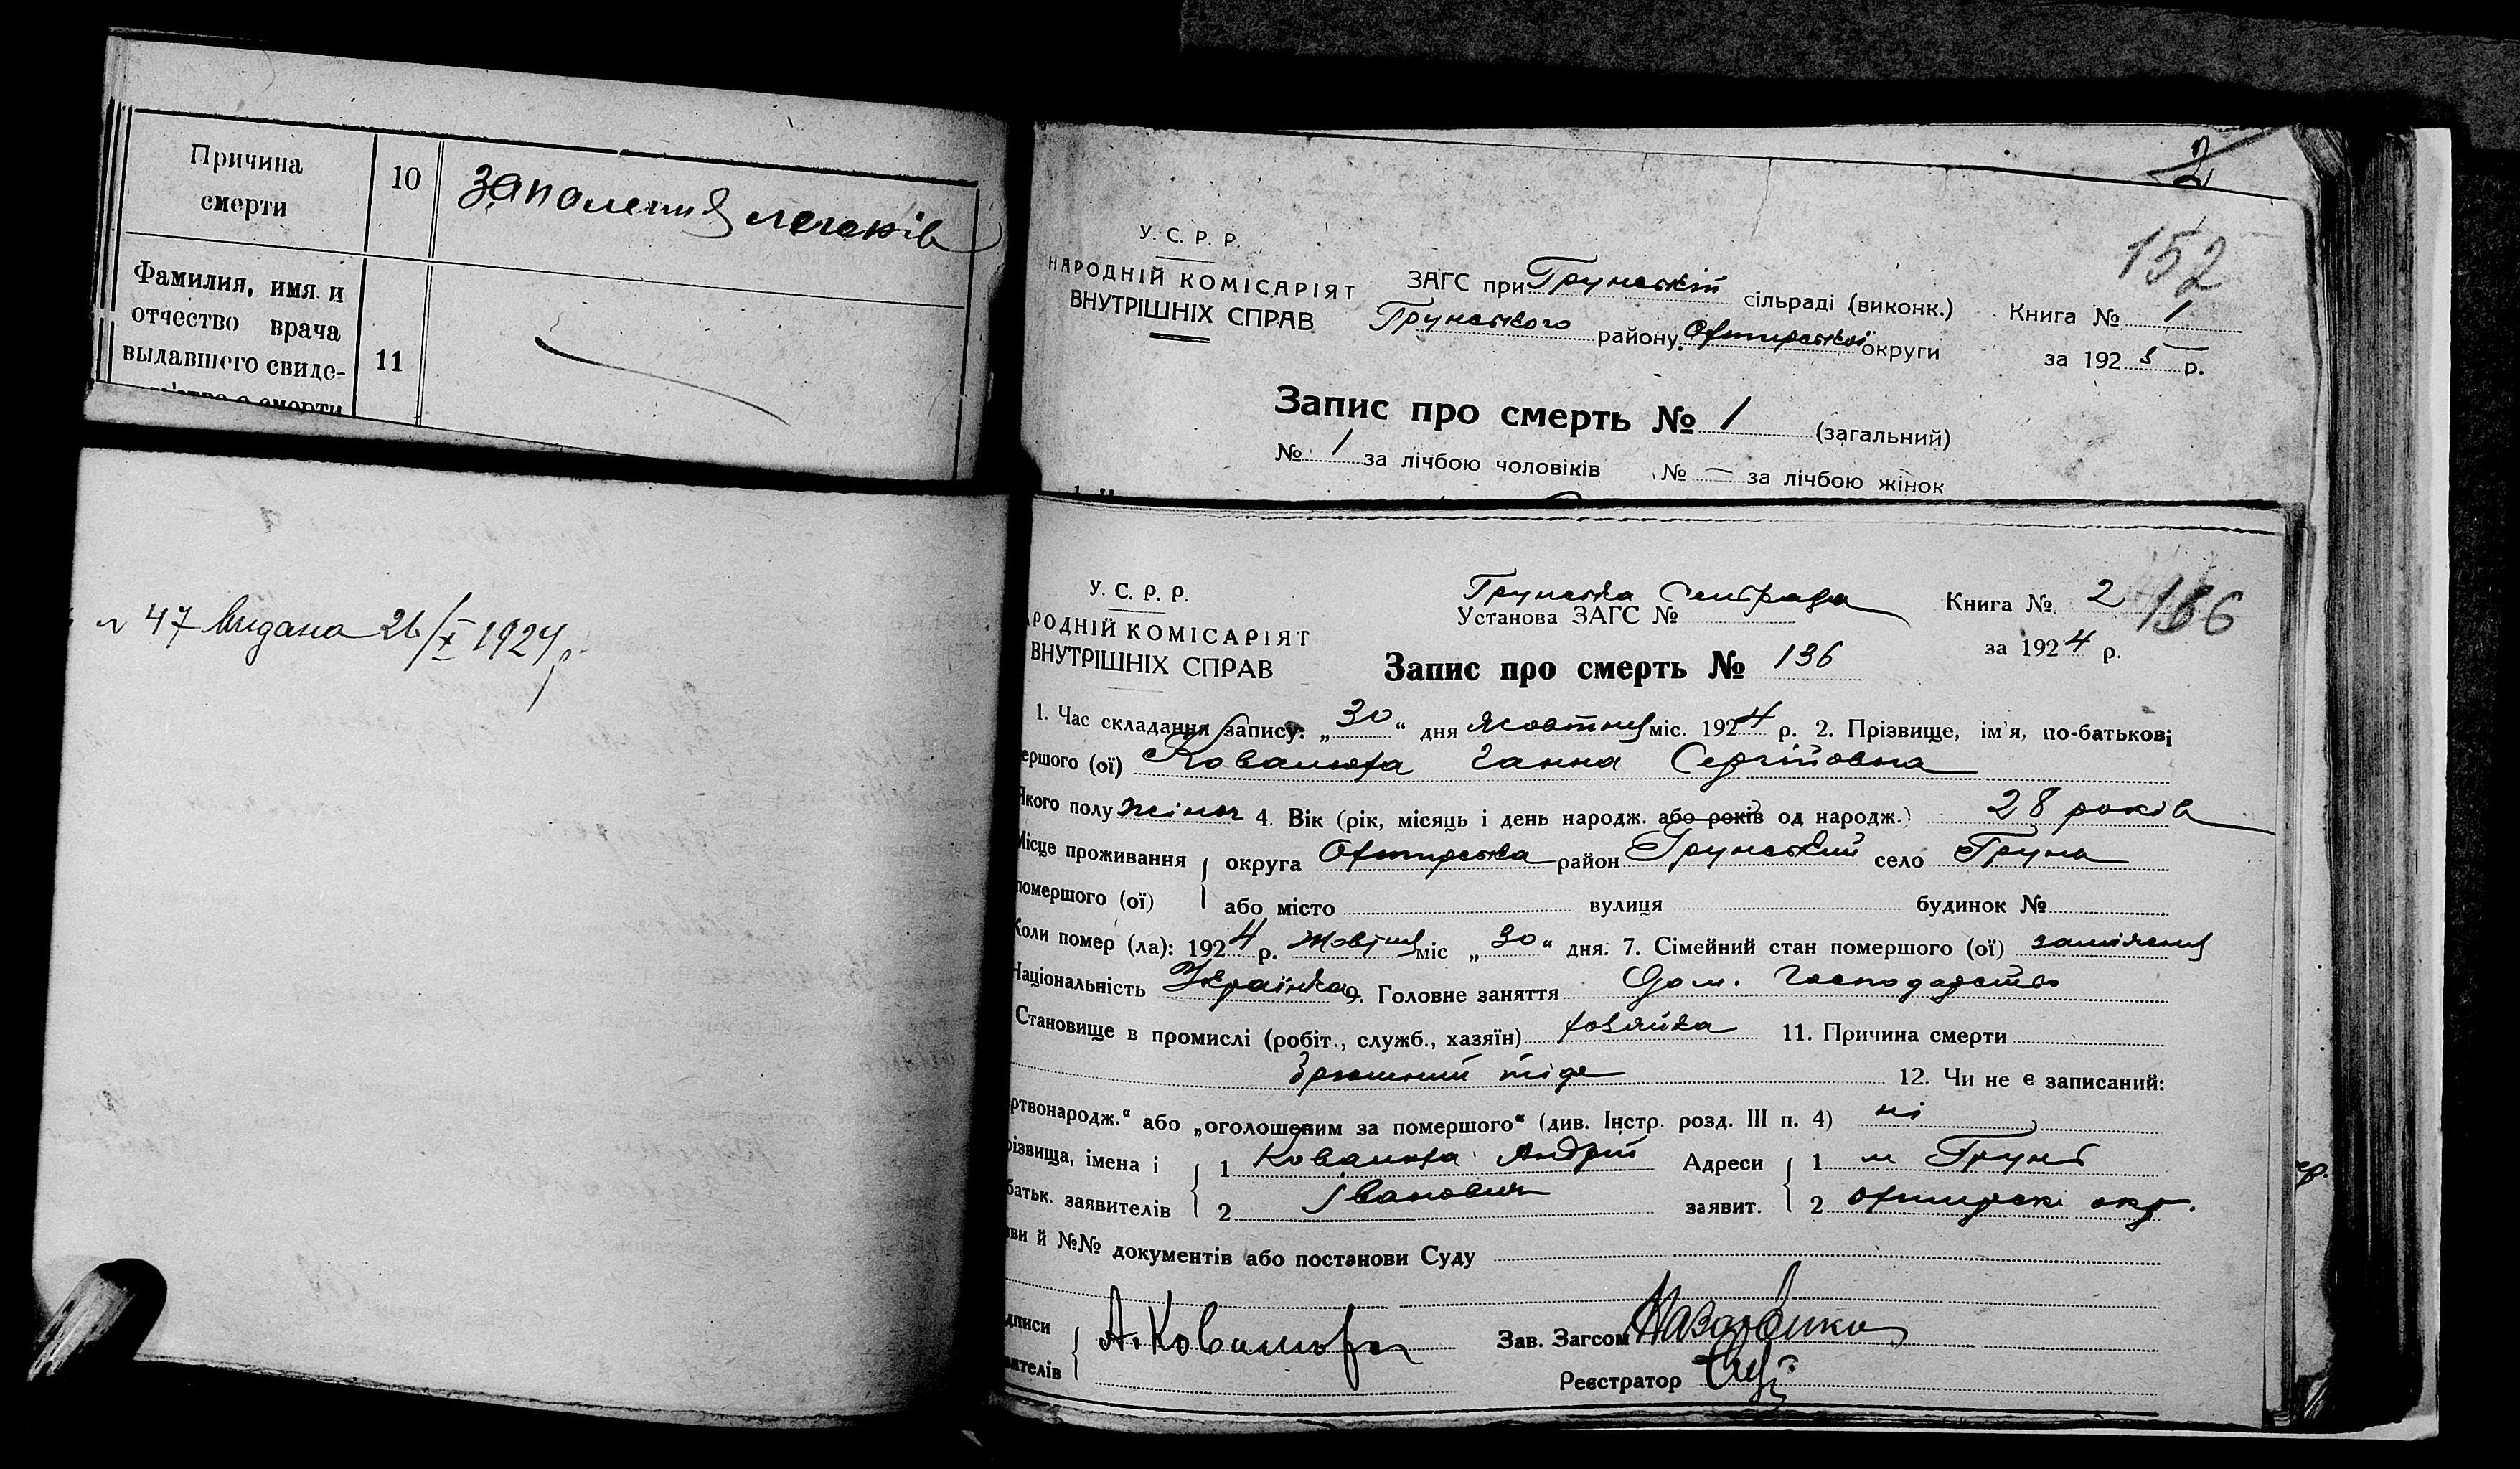 Причина
смерти
10
запалення легенів
Фамилия, имя и
отчество врача
выдавшего свиде-
11
2
152
У. С. Р. Р.
НАРОДНІЙ КОМІСАРІЯТ
ВНУТРІШНІХ СПРАВ
ЗАГС при Грунській сільраді (виконк.)
Грунського району Охтирської округи
Книга № 1
за 1925 р.
Запис про смерть № 1 (загальний)
№ 1 за лічбою чоловіків № — за лічбою жінок
47 видана 26/X 1924 р.
У. С. Р. Р.
РОДНІЙ КОМІСАРІЯТ
ВНУТРІШНІХ СПРАВ
Грунська
Установа ЗАГС №
Книга № 2
136
за 1924 р.
Запис про смерть № 136
1. Час складання запису: „30“ дня жовтня міс. 1924 р. 2. Прізвище, ім'я, по-батькові
ершого (ої) Ковалюха Ганна Сергіївна
Якого полу жіноч 4. Вік (рік, місяць і день народж. або років од народж.) 28 років
Місце проживання округа Охтирська район Грунський село Грунь
помершого (ої) або місто вулиця будинок №
Коли помер (ла): 1924 р. Жовтня міс „30“ дня. 7. Сімейний стан помершого (ої) заміжня
Національність Українка 9. Головне заняття Дом. господарство
Становище в промислі (робіт., служб., хазяїн) хозяйка 11. Причина смерти
12. Чи не є записаний:
ртвонародж.“ або „оголошеним за помершого“ (див. Інстр. розд. III п. 4) ні
різвища, імена і 1 Ковалюха Андрій Адреси 1 м Грунь
батьк. заявителів 2 Іванович заявит. 2 Охтирскі окр.
ви й №№ документів або постанови Суду
дписи
вителів
А. Ковалюха
Зав. Загсом
Реєстратор